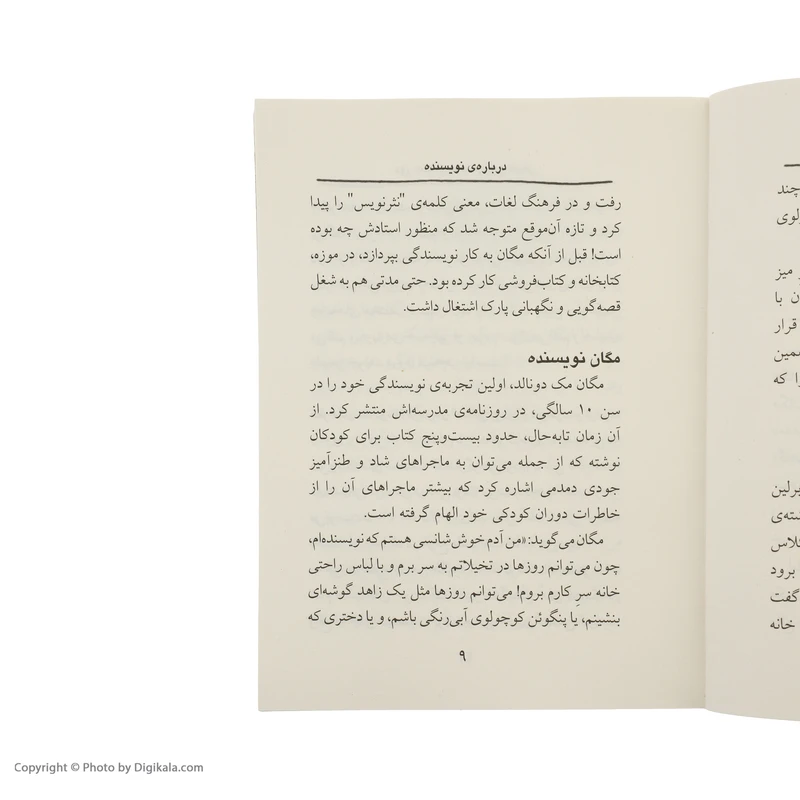 درباره‌ی نویسنده
رفت و در فرهنگ لغات، معنی کلمه‌ی "نثرنویس" را پیدا
کرد و تازه آن‌موقع متوجه شد که منظور استادش چه بوده
است! قبل از آنکه مگان به کار نویسندگی بپردازد، در موزه،
کتابخانه و کتاب‌فروشی کار کرده بود. حتی مدتی هم به شغل
قصه‌گویی و نگهبانی پارک اشتغال داشت.
مگان نویسنده
مگان مک دونالد، اولین تجربه‌ی نویسندگی خود را در
سن ۱۰ سالگی، در روزنامه‌ی مدرسه‌اش منتشر کرد. از
آن زمان تابه‌حال، حدود بیست‌وپنج کتاب برای کودکان
نوشته که از جمله می‌توان به ماجراهای شاد و طنزآمیز
جودی دمدمی اشاره کرد که بیشتر ماجراهای آن را از
خاطرات دوران کودکی خود الهام گرفته است.
مگان می‌گوید: «من آدم خوش‌شانسی هستم که نویسنده‌ام،
چون می‌توانم روزها در تخیلاتم به سر برم و با لباس راحتی
خانه سرِ کارم بروم! می‌توانم روزها مثل یک زاهد گوشه‌ای
بنشینم، یا پنگوئن کوچولوی آبی‌رنگی باشم، و یا دختری که
۹
چند
ولوی
میز
ن با
قرار
همین
ا که
برلین
شته‌ی
کلاس
برود
گفت
خانه
Copyright © Photo by Digikala.com